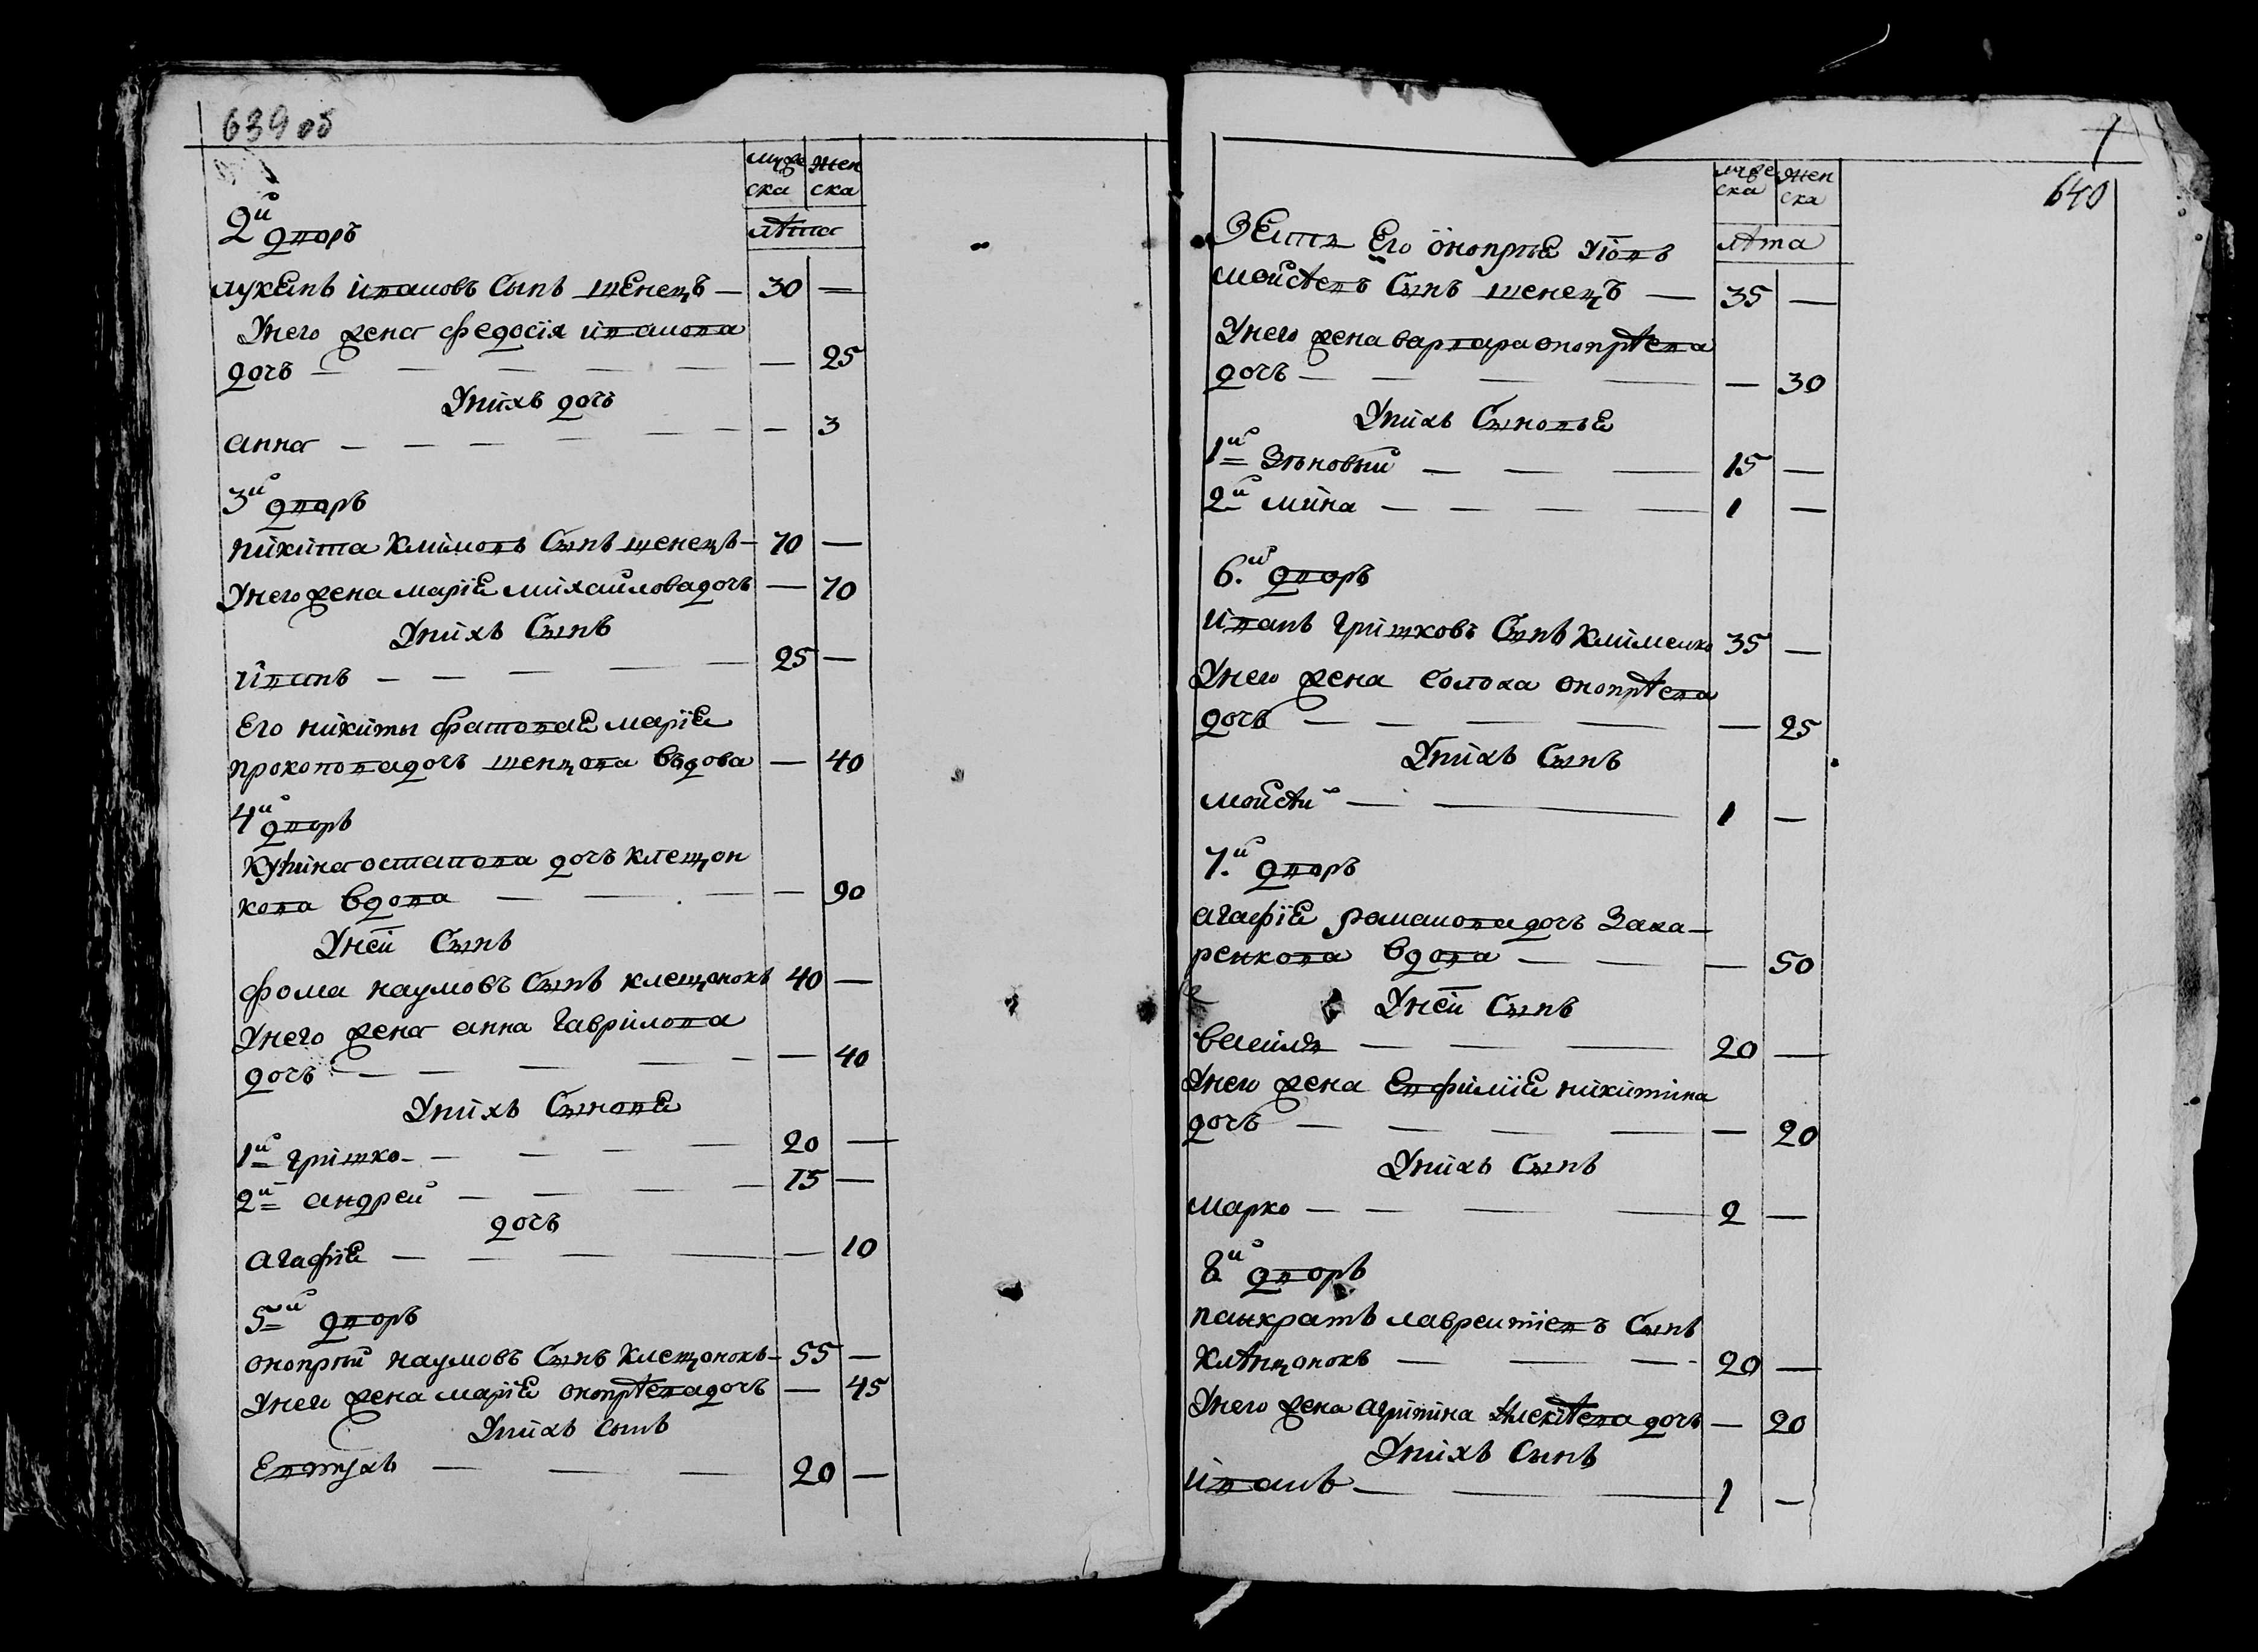 639 об
мужe жен
ска ска
лѣта
2й дворъ
лукянъ ивановъ Сынъ шевецъ — 30 —
Унего жена федосїя иванова
дочъ — — 25
Унихъ дочъ
анна — — 3
3й дворъ
никита климовъ Сынъ шевецъ — 70 —
Унего жена марїе михаиловадочъ — 70
Унихъ Сынъ
иванъ — 25 —
Его никиты братовае марїе
прокоповадочъ шевцова въдова — 40
4й дворъ
остапова дочъ клещон
кова вдова — — 90
Уней Сынъ
фома наумовъ Сынъ клещонокъ 40 —
Унего жена анна гаврилова
дочъ — — 40
Унихъ Сынове
1й гришко — 20 —
2й андрей — 15 —
дочъ
агафїе — — 10
5й дворъ
онопрїй наумовъ Сынъ клещонокъ — 55 —
Унего жена марїе онопрѣевадочъ — 45
Унихъ сынъ
Евтухъ — 20 —
640
мужe жен
ска ска
лѣта
Зять Его онопрїе
мойсѣевъ Сынъ шевецъ — 35 —
Унего жена варвара онопрѣева
дочъ — — 30
Унихъ Сыновье
1й Зѣновый — 15 —
2й мина — 1 —
6.й дворъ
иванъ гришковъ Сынъ клименко 35 —
Унего жена солоха онопрѣева
дочъ — — 25
Унихъ Сынъ
мойсѣй — 1 —
7.й дворъ
агафїе романовадочъ Заха—
ренкова вдова — — 50
Уней Сынъ
василь — 20 —
Унего жена Евфимїе никитина
дочъ — — 20
Унихъ Сынъ
марко — 2 —
8й дворъ
панкратъ лаврентїевъ Сынъ
клѣщонокъ — 20 —
Унего жена агрипина алексѣева дочъ — 20
Унихъ Сынъ
иванъ — 1 —